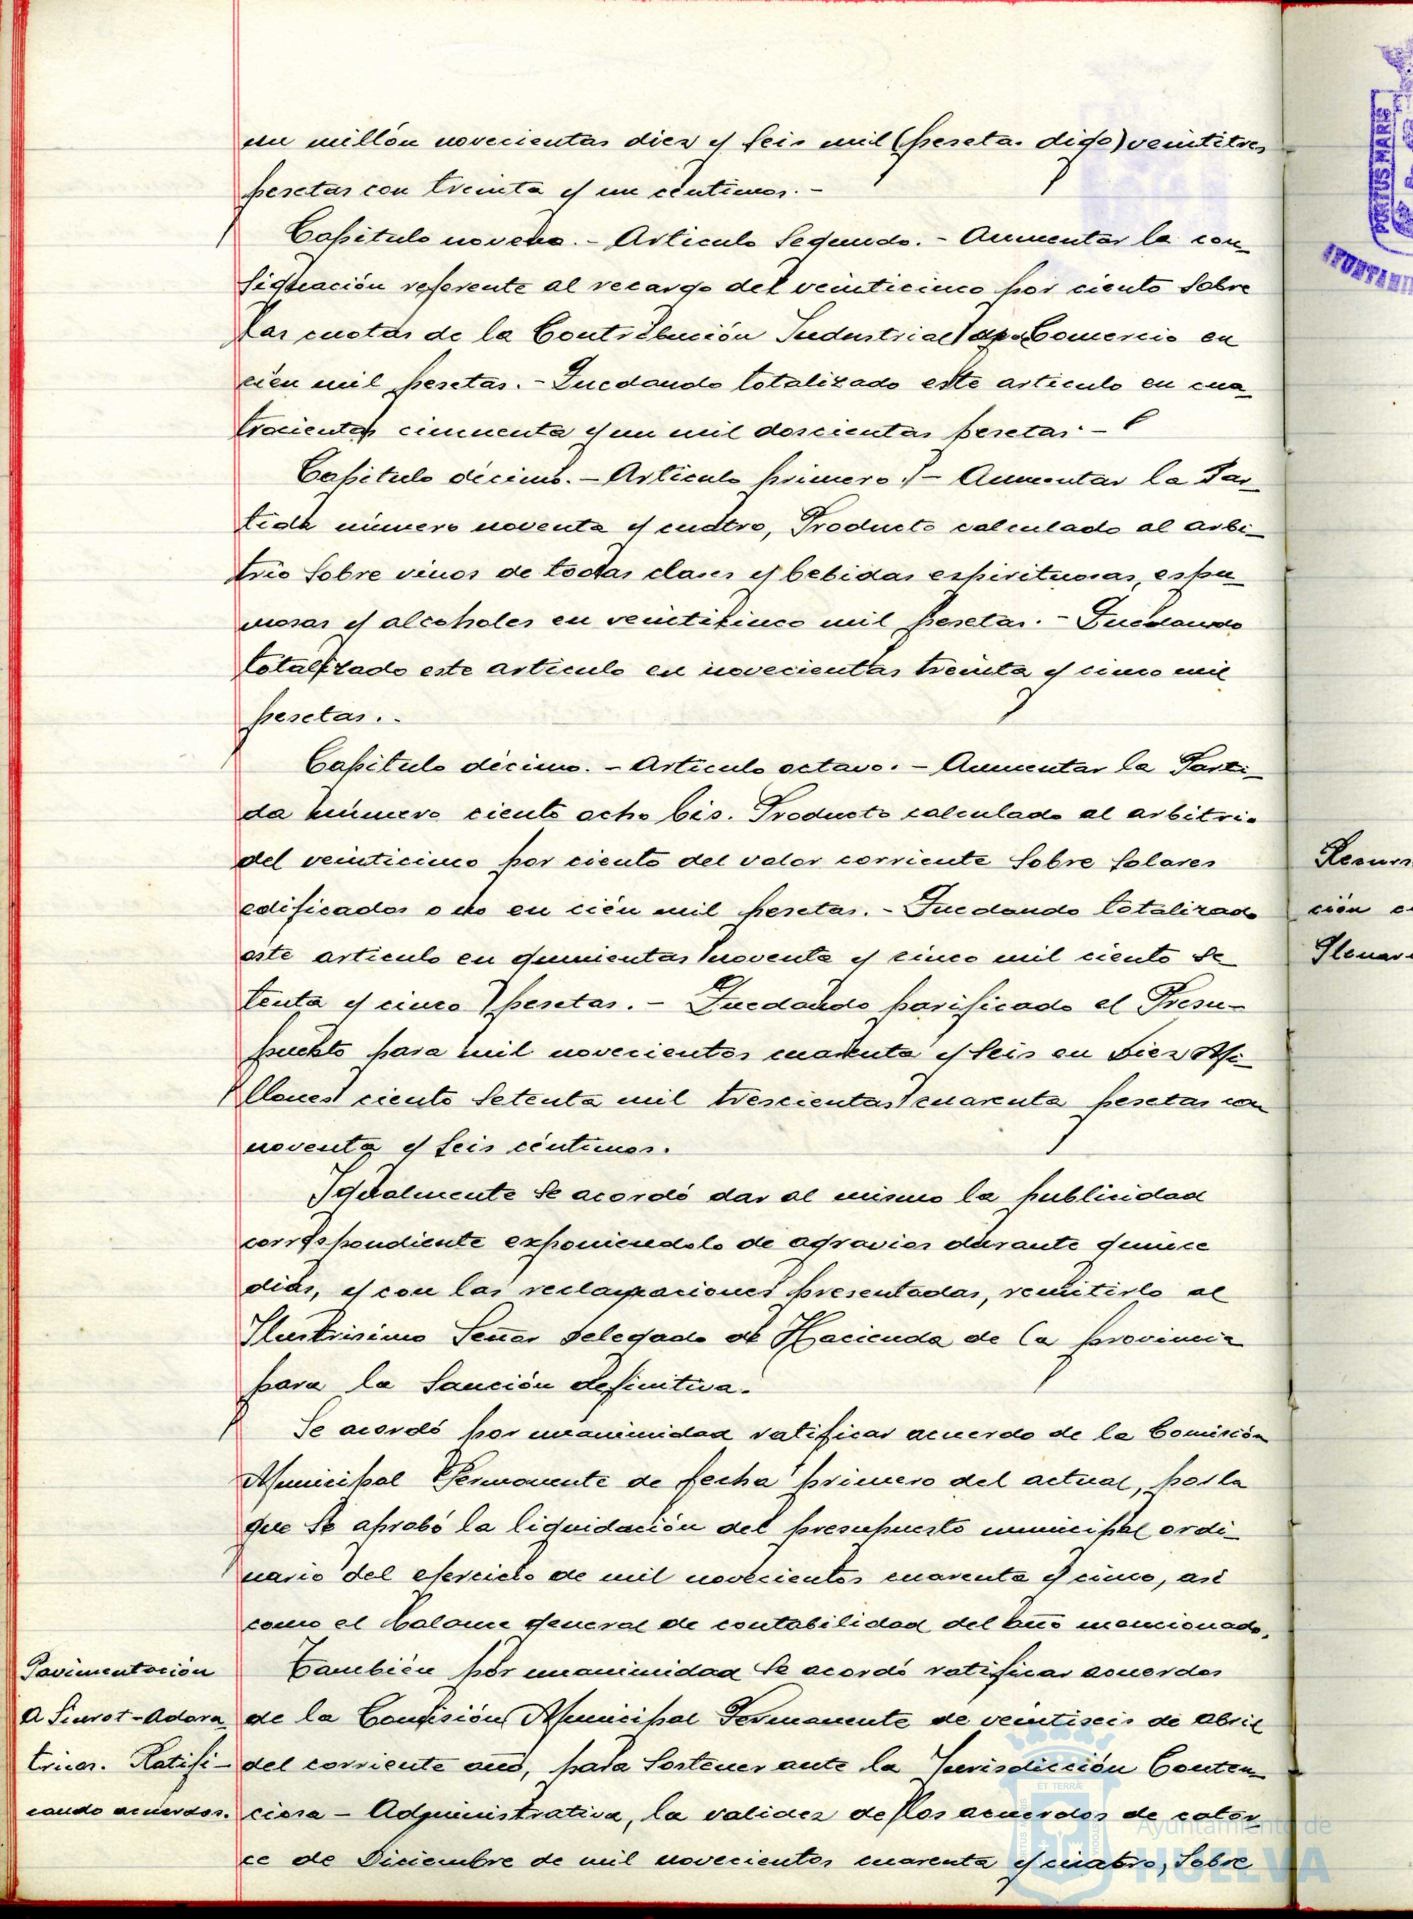 un millón novecientas diez y seis mil (peseta. digo) veintitres
pesetas con treinta y un centimos.-
Capitulo noveno.- Articulo Segundo.- Aumentar la con_
signación referente al recargo del veinticinco por ciento sobre
las cuotas de la Contribución Industrial de Comercio en
cién mil pesetas.- Quedando totalizado este articulo en cua_
trocientas cincuenta y un mil doscientas pesetas.-
Capitulo décimo.- Articulo primero.- Aumentar la Par_
tida número noventa y cuatro, Producto calculado al arbi_
trio sobre vinos de todas clases y bebidas espirituosas, espu_
mosas y alcoholes en veinticinco mil pesetas.- Quedando
totalizado este articulo en novecientas treinta y cinco mil
pesetas..
Capitulo décimo.- Articulo octavo.- Aumentar la Parti_
da número ciento ocho bis. Producto calculado al arbitrio
del veinticinco por ciento del valor corriente sobre solares
edificados o no en cién mil pesetas.- Quedando totalizado
este articulo en quinientas noventa y cinco mil ciento se_
tenta y cinco pesetas.- Quedando parificado el Presu-
puesto para mil novecientos cuarenta y seis en Diez Mi_
llones ciento setenta mil trescientas cuarenta pesetas con
noventa y seis céntimos.
Igualmente se acordó dar al mismo la publicidad
correspondiente exponiendolo de agravios durante quince
dias, y con las reclamaciones presentadas, remitirlo al
Ilustrisimo Señor Delegado de Hacienda de la provincia
para la sanción definitiva.
Se acordó por unanimidad ratificar acuerdo de la Comisión
Municipal Permanente de fecha primero del actual, por la
que se aprobó la liquidación del presupuesto municipal ordi_
nario del ejercicio de mil novecientos cuarenta y cinco, asi
como el balance general de contabilidad del año mencionado.
Pavimentación
A Siurot-Adora_
trices. Ratifi-
cando acuerdos.
También por unanimidad se acordó ratificar acuerdos
de la Comisión Municipal Permanente de veintiseis de abril
del corriente año, para sostener ante la Jurisdicción Conten_
ciosa - Administrativa, la validez de los acuerdos de cator_
ce de Diciembre de mil novecientos cuarenta y cuatro, sobre
PORTUS MARIS
ción
ET TERRÆ
Ayuntamiento de
HUELVA